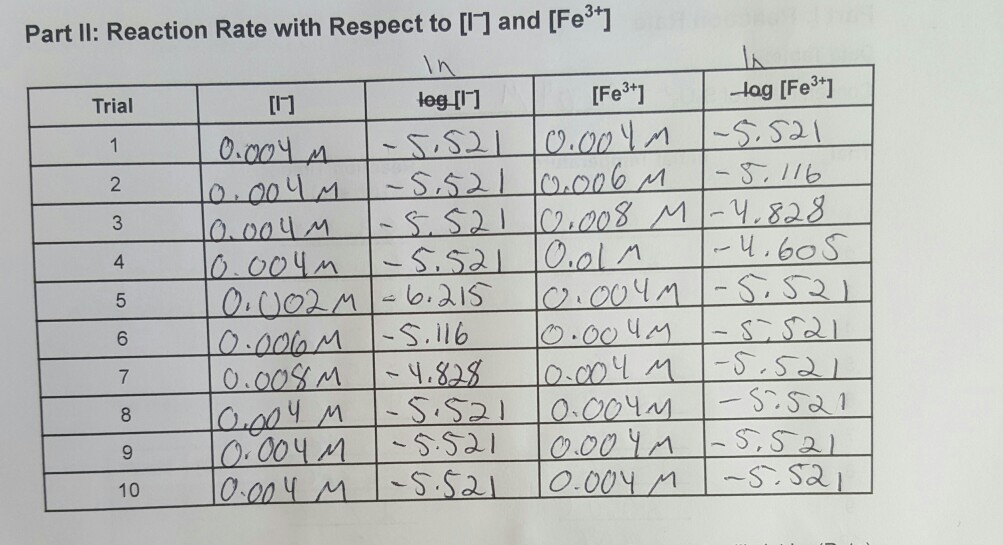 Part II: Reaction Rate with Respect to [I⁻] and [Fe³⁺]
ln ln
Trial [I⁻] log [I⁻] [Fe³⁺] log [Fe³⁺]
1 0.004 M -5.521 0.004 M -5.521
2 0.004 M -5.521 0.006 M -5.116
3 0.004 M -5.521 0.008 M -4.828
4 0.004 M -5.521 0.01 M -4.605
5 0.002 M -6.215 0.004 M -5.521
6 0.006 M -5.116 0.004 M -5.521
7 0.008 M -4.828 0.004 M -5.521
8 0.004 M -5.521 0.004 M -5.521
9 0.004 M -5.521 0.004 M -5.521
10 0.004 M -5.521 0.004 M -5.521